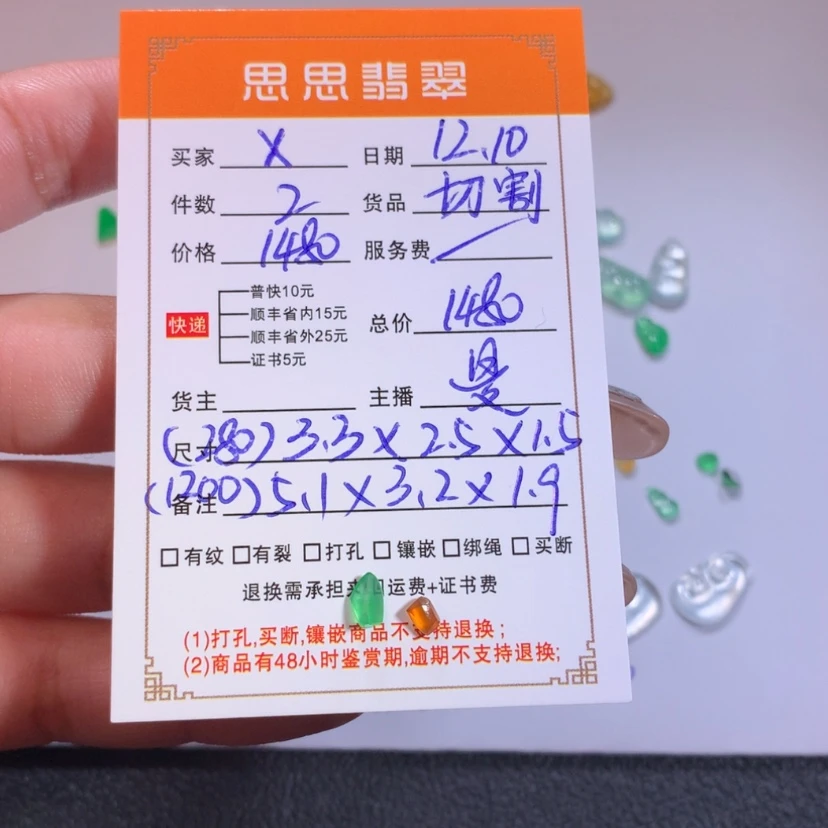 思思翡翠
买家 X 日期 12.10
件数 2 货品 切割
价格 1480 服务费 /
快递
普快10元
顺丰省内15元
顺丰省外25元
证书5元
总价 1480
货主 主播
尺寸 (280) 3.3 X 2.5 X 1.5
备注 (1200) 5.1 X 3.2 X 1.9
□有纹 □有裂 □打孔 □镶嵌 □绑绳 □买断
退换需承担来回运费+证书费
(1)打孔,买断,镶嵌商品不支持退换;
(2)商品有48小时鉴赏期,逾期不支持退换;